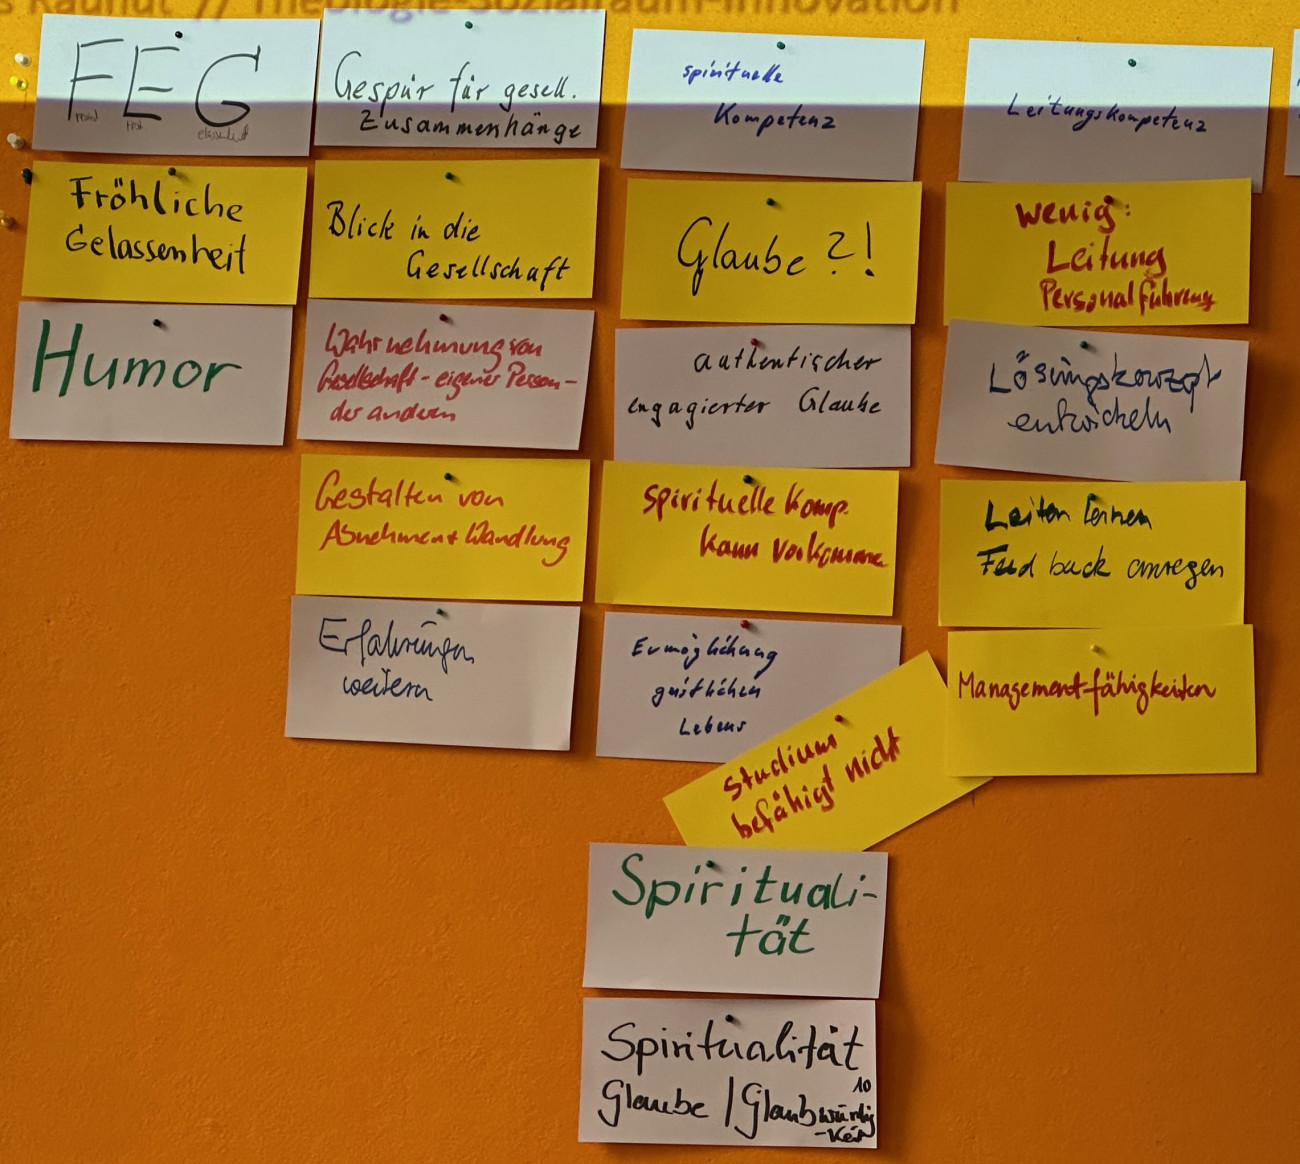 Kaunut // Theologie-Sozialraum-Innovation
FEG
Fröhliche
Gelassenheit
Humor
Gespür für gesell.
Zusammenhänge
Blick in die
Gesellschaft
Wahrnehmung von
Gesellschaft - eigener Person -
der anderen
Gestalten von
Abnehmen + Wandlung
Erfahrungen
weitern
spirituelle
Kompetenz
Glaube ?!
authentischer
engagierter Glaube
spirituelle Komp.
kann vorkommen
Ermöglichung
geistlichen
Lebens
Studium
befähigt nicht
Spirituali-
tät
Spiritualität
Glaube / Glaubwürdig
-keit
10
Leitungskompetenz
wenig:
Leitung
Personalführung
Lösungskonzept
entwickeln
Leiten lernen
Feed back anregen
Management-fähigkeiten